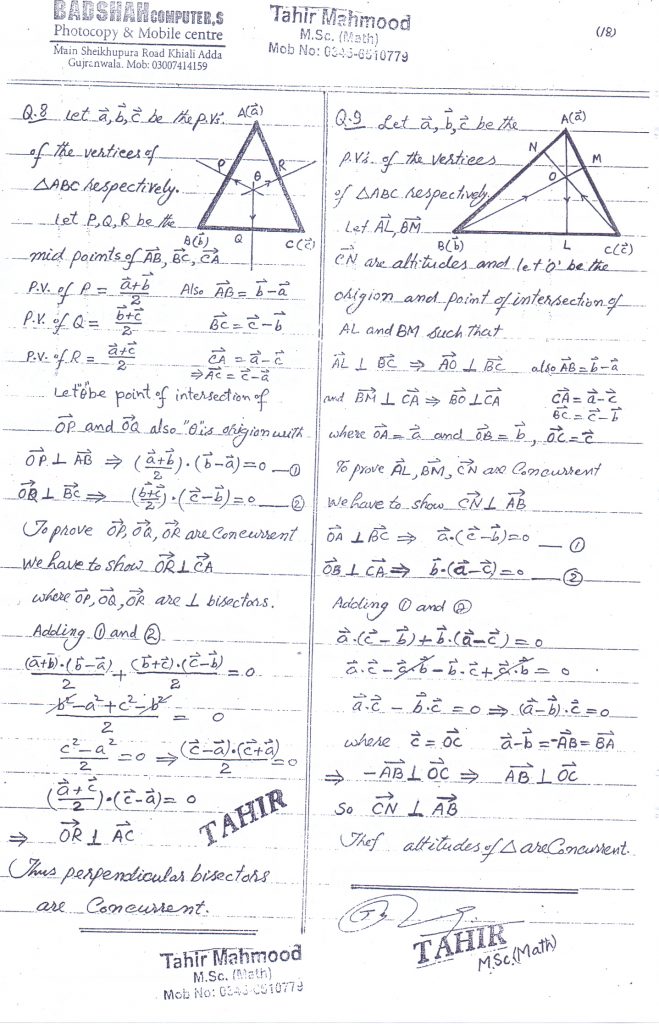 BADSHAH COMPUTER,S
Photocopy & Mobile centre
Main Sheikhupura Road Khiali Adda
Gujranwala. Mob: 03007414159
Tahir Mahmood
M.Sc. (Math)
Mob No: 0345-6510779
(18)
Q.8 Let a⃗, b⃗, c⃗ be the p.v's
of the vertices of
△ABC respectively.
Let P, Q, R be the
mid points of AB⃗, BC⃗, CA⃗
A(a⃗)
P
R
θ
B(b⃗)
Q
C(c⃗)
P.V. of P = (a⃗+b⃗)/2 Also AB⃗ = b⃗-a⃗
P.V. of Q = (b⃗+c⃗)/2 BC⃗ = c⃗-b⃗
P.V. of R = (a⃗+c⃗)/2 CA⃗ = a⃗-c⃗
⇒ AC⃗ = c⃗-a⃗
Let "θ" be point of intersection of
OP⃗ and OQ⃗ also "θ" is origion with
OP⃗ ⊥ AB⃗ ⇒ ((a⃗+b⃗)/2)·(b⃗-a⃗)=0 —①
OQ⃗ ⊥ BC⃗ ⇒ ((b⃗+c⃗)/2)·(c⃗-b⃗)=0 —②
To prove OP⃗, OQ⃗, OR⃗ are Concurrent
We have to show OR⃗ ⊥ CA⃗
where OP⃗, OQ⃗, OR⃗ are ⊥ bisectors.
Adding ① and ②
(a⃗+b⃗)·(b⃗-a⃗)/2 + (b⃗+c⃗)·(c⃗-b⃗)/2 = 0
(b²-a²+c²-b²)/2 = 0
(c²-a²)/2 = 0 ⇒ (c⃗-a⃗)·(c⃗+a⃗)/2 = 0
((a⃗+c⃗)/2)·(c⃗-a⃗) = 0
⇒ OR⃗ ⊥ AC⃗
TAHIR
Thus perpendicular bisectors
are Concurrent.
Tahir Mahmood
M.Sc. (Math)
Mob No: 0345-6510779
Q.9 Let a⃗, b⃗, c⃗ be the
p.v's. of the vertices
of △ABC respectively
Let AL⃗, BM⃗
A(a⃗)
N
M
O
B(b⃗)
L
C(c⃗)
CN⃗ are altitudes and let 'O' be the
origion and point of intersection of
AL and BM such that
AL⃗ ⊥ BC⃗ ⇒ AO⃗ ⊥ BC⃗ also AB⃗=b⃗-a⃗
and BM⃗ ⊥ CA⃗ ⇒ BO⃗ ⊥ CA⃗ CA⃗ = a⃗-c⃗
BC⃗ = c⃗-b⃗
where OA⃗ = a⃗ and OB⃗ = b⃗, OC⃗=c⃗
To prove AL⃗, BM⃗, CN⃗ are Concurrent
We have to show CN⃗ ⊥ AB⃗
OA⃗ ⊥ BC⃗ ⇒ a⃗·(c⃗-b⃗)=0 —①
OB⃗ ⊥ CA⃗ ⇒ b⃗·(a⃗-c⃗)=0 —②
Adding ① and ②
a⃗·(c⃗-b⃗)+b⃗·(a⃗-c⃗) = 0
a⃗·c⃗-a⃗·b⃗-b⃗·c⃗+a⃗·b⃗ = 0
a⃗·c⃗ - b⃗·c⃗ = 0 ⇒ (a⃗-b⃗)·c⃗=0
where c⃗ = OC⃗ a⃗-b⃗ = -AB⃗ = BA⃗
⇒ -AB⃗ ⊥ OC⃗ ⇒ AB⃗ ⊥ OC⃗
So CN⃗ ⊥ AB⃗
Thef altitudes of △ are Concurrent.
TAHIR
M.Sc.(Math)